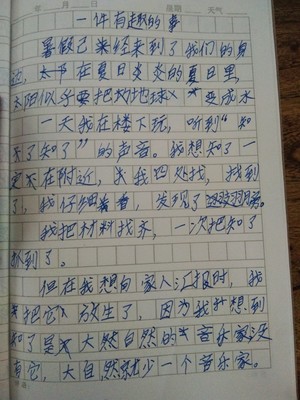 年 月 日 星期 天气
一件有趣的事
暑假已经来到了我们的身
边，在夏日炎炎的夏日里，
太阳似乎要把地球变成水
一天我在楼下玩，听到“知
了知了”的声音。我想知了一
定在附近，我四处找，找到
了，我仔细看，发现了
我把材料找齐，一次把知了
抓到了。
但在我想向家人汇报时，我
把它放生了，因为我想到
知了是大自然的音乐家没
有它，大自然就少一个音乐家。